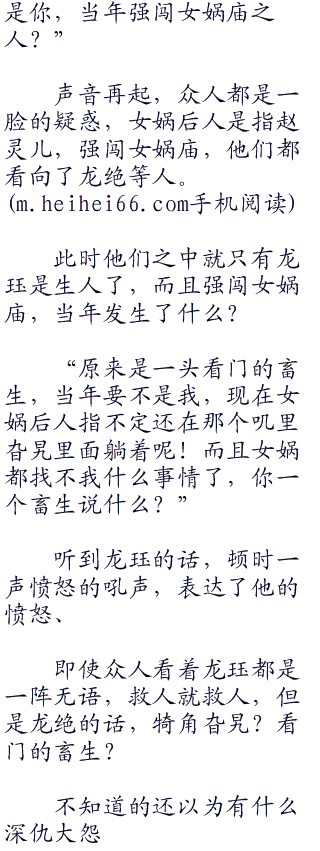 是你，当年强闯女娲庙之
人？”
声音再起，众人都是一
脸的疑惑，女娲后人是指赵
灵儿，强闯女娲庙，他们都
看向了龙绝等人。
(m.heihei66.com手机阅读)
此时他们之中就只有龙
珏是生人了，而且强闯女娲
庙，当年发生了什么？
“原来是一头看门的畜
生，当年要不是我，现在女
娲后人指不定还在那个叽里
旮旯里面躺着呢！而且女娲
都找不我什么事情了，你一
个畜生说什么？”
听到龙珏的话，顿时一
声愤怒的吼声，表达了他的
愤怒、
即使众人看着龙珏都是
一阵无语，救人就救人，但
是龙绝的话，犄角旮旯？看
门的畜生？
不知道的还以为有什么
深仇大怨